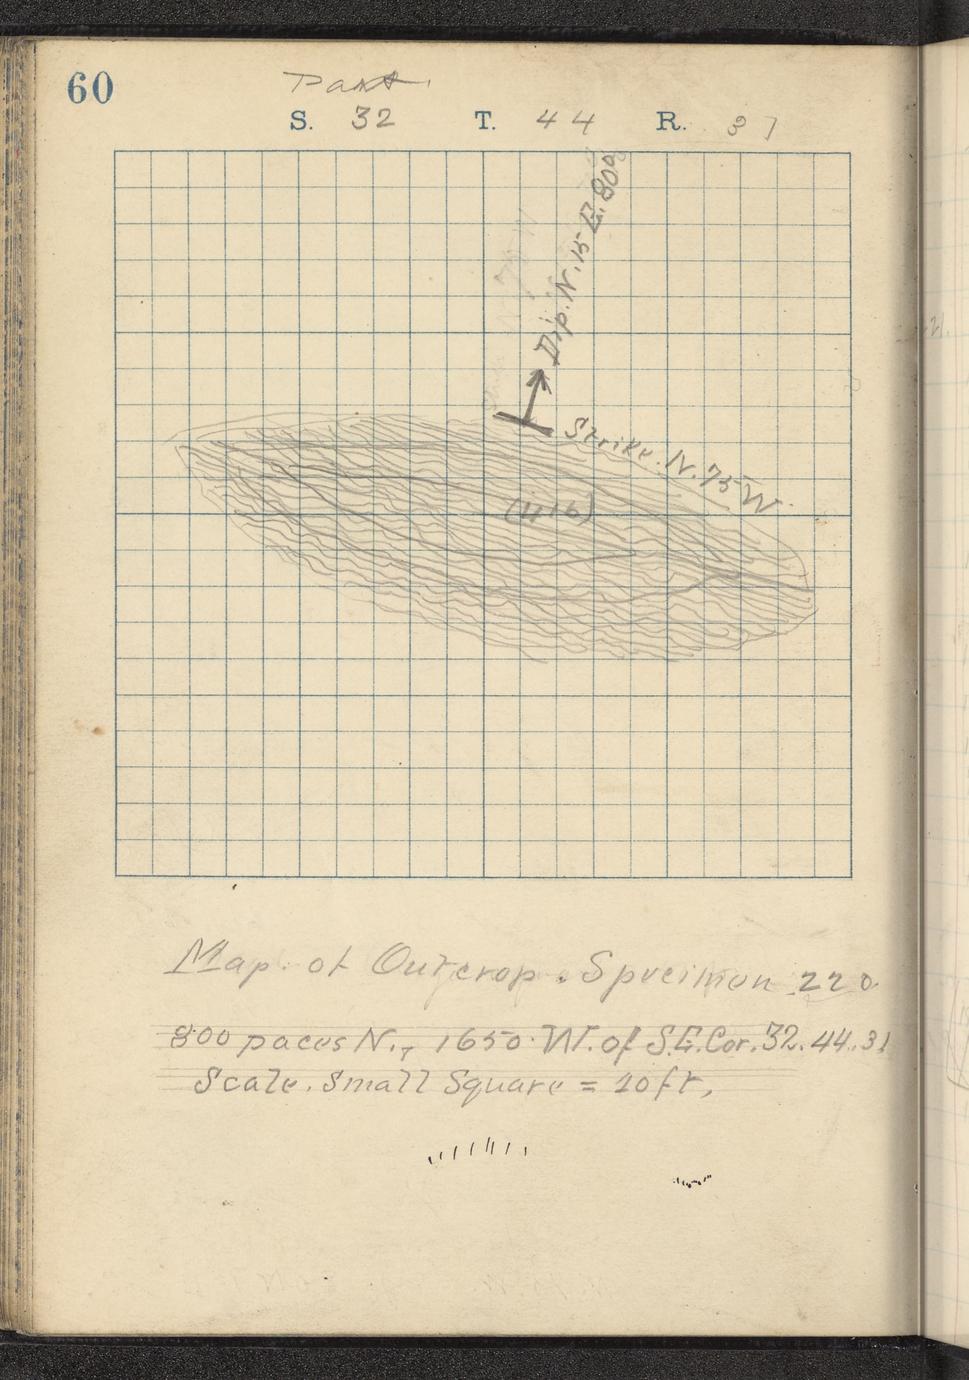 60
Part.
S. 32 T. 44 R. 31
Dip. N. 15 E. 80°
Strike. N. 75 W.
(416)
Map. of Outcrop. Specimen 220
800 paces N., 1650 W. of S.E. Cor. 32. 44. 31
Scale. Small Square = 10 ft,